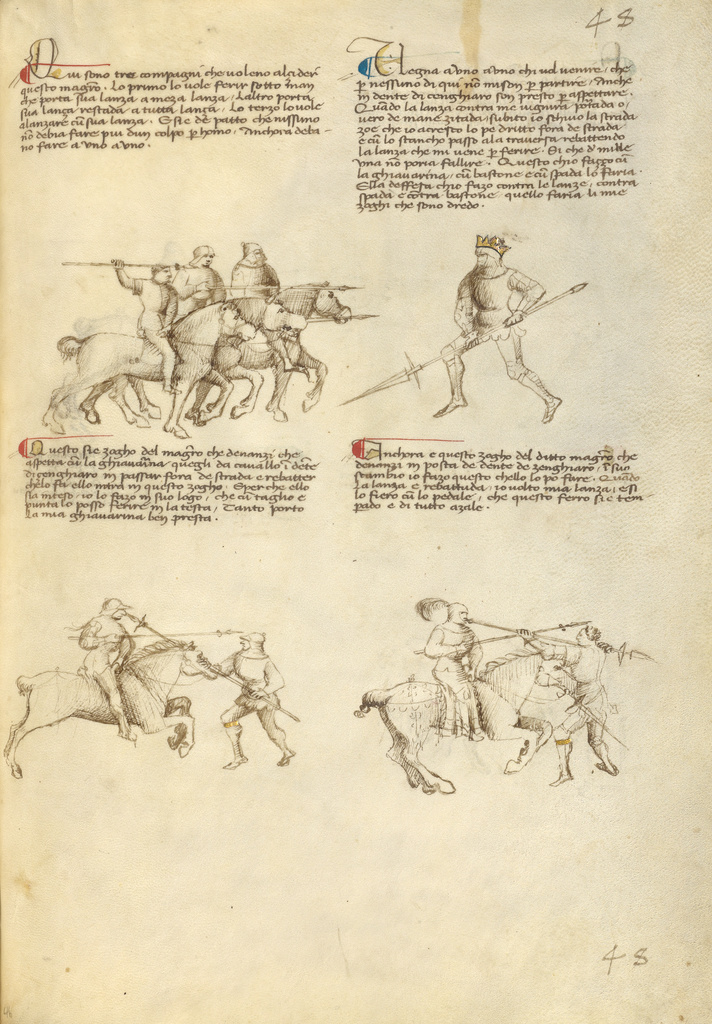 48
Qui sono tre compagni che voleno alcider
questo magistro. Lo primo lo vole ferir sotto man
che porta sua lanza a meza lanza / Laltro porta
sua lanza restada a tutta lanza. Lo terzo lo vole
alanzare cum sua lanza. E si e de patto che nissuno
non debia fare piu dun colpo per homo / Anchora deba-
no fare a uno a uno.
Vegna a uno a uno chi vol venire, che
per nessuno di qui non mi son per partire / Anche
in dente di cenghiaro son presto per aspettare.
Quando la lanza contra me vignirà portada o
vero de mane zitada / subito io schivo la strada
zoe che io acresco lo pe dritto fora de strada
e cum lo stancho passo a la traversa rebattendo
la lanza che mi vene per ferire. Si che d' mille
una non poria fallire. Questo chio fazzo cum
la ghiavarina / cum bastone e cum spada lo faria.
Ella deffesa chio fazo contra le lanze / contra
spada e contra bastone quello faria li miei
zoghi che sono dredo.
Questo si e zogho del magistro che denanzi che
aspetta cum la ghiavarina quegli da cavallo i dente
di cenghiaro in passar fora de strada e rebatter
chelo fa ello intra in questo zogho. E per che ello
sia inteso io lo fazo in suo logo / che cum taglio e
punta lo posso ferire in la testa / Tanto porto
la mia ghiavarina ben presta.
Anchora e questo zogho del ditto magistro che
denanzi in posta de dente de zenghiaro / i suo
scambio io fazo questo chello lo po fare. Quando
la lanza e rebattuda / io volto mia lanza / e si
lo fiero cum lo pedale / che questo ferro si e tem-
pado e di tutto azale.
48